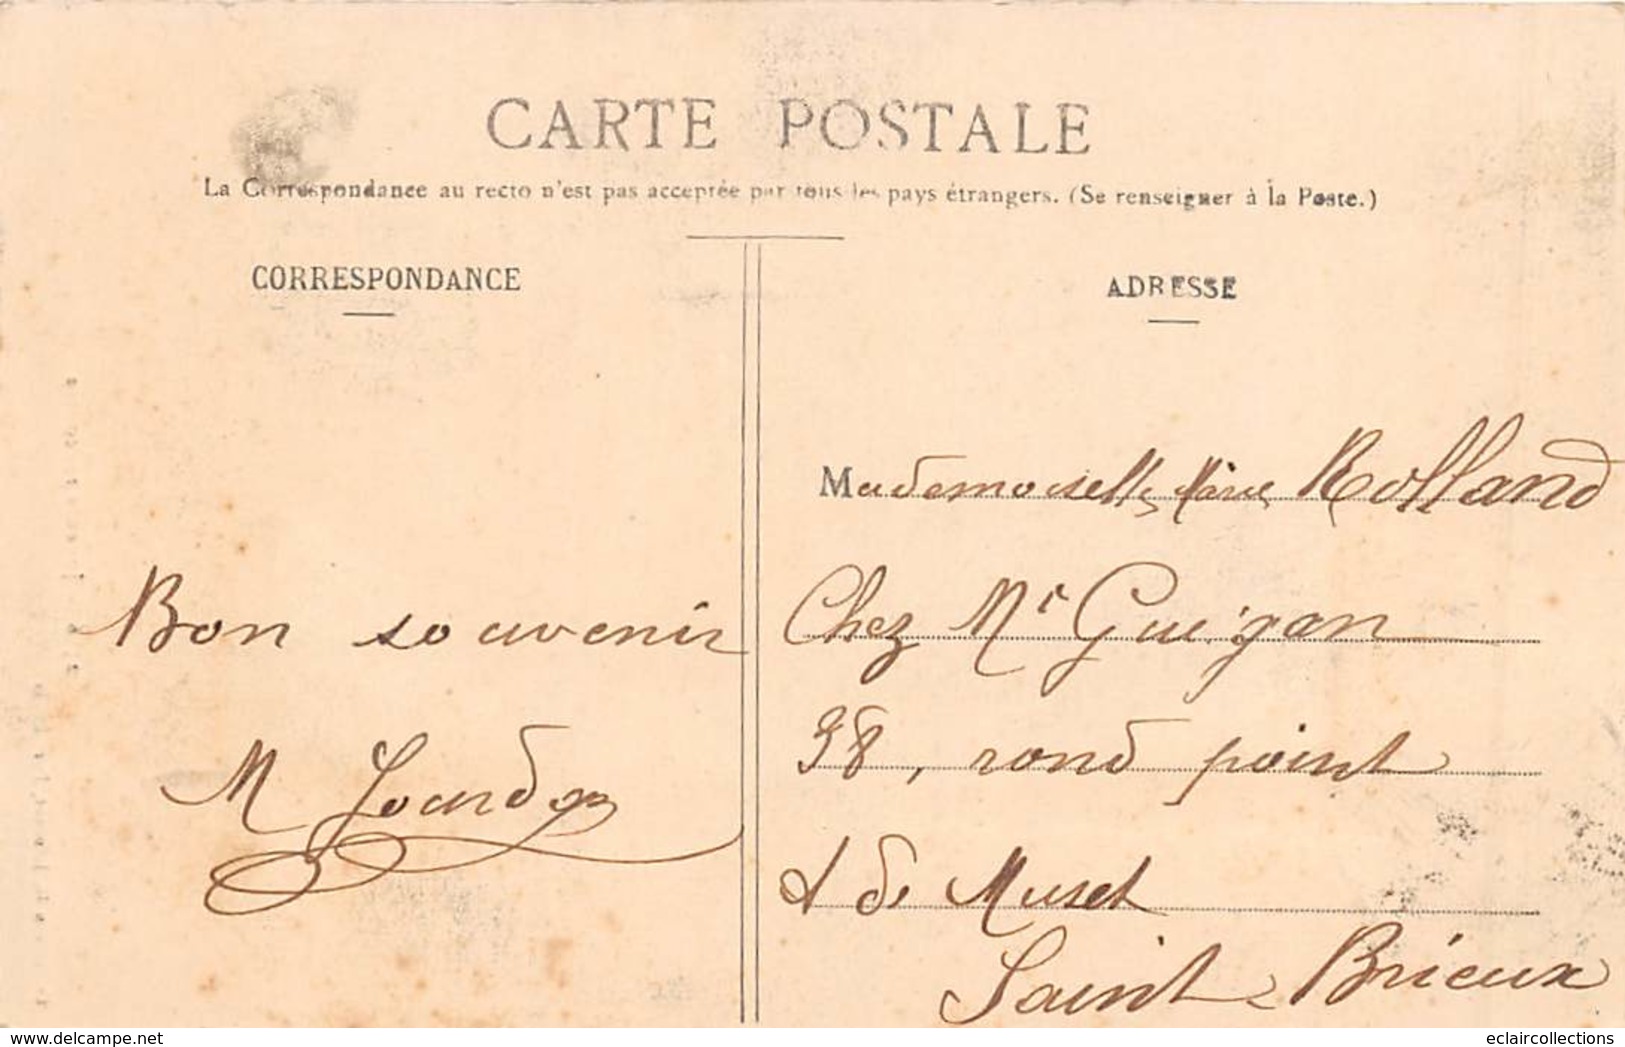 CARTE POSTALE
La Correspondance au recto n'est pas acceptée par tous les pays étrangers. (Se renseigner à la Poste.)
CORRESPONDANCE
Bon souvenir
M Jourdan
ADRESSE
Mademoiselle Marie Rolland
Chez Mr Guégan
38, rond point
de Muset
Saint-Brieux
www.delcampe.net
eclaircollections